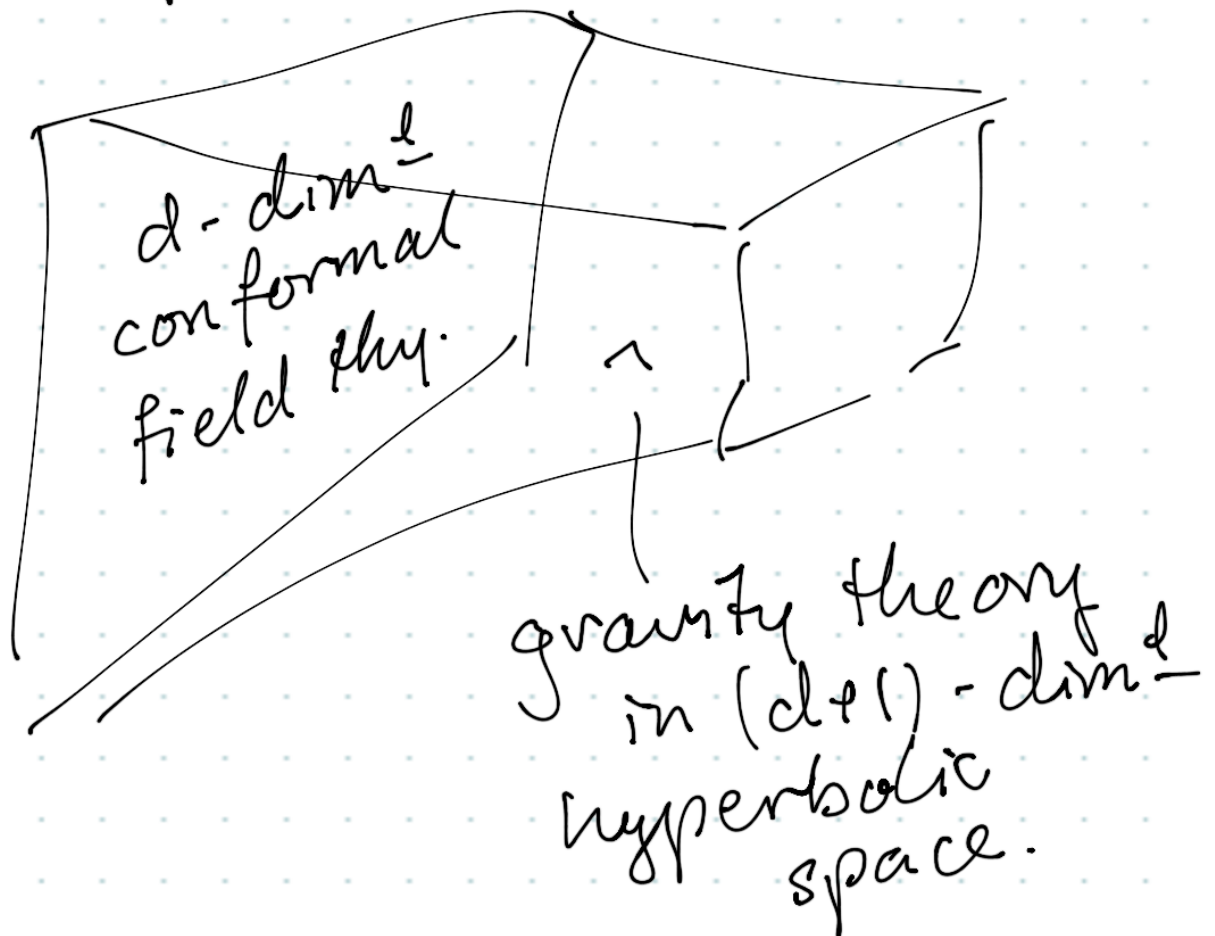 d-dim^l
conformal
field thy.
gravity theory
in (d+1)-dim^l
hyperbolic
space.